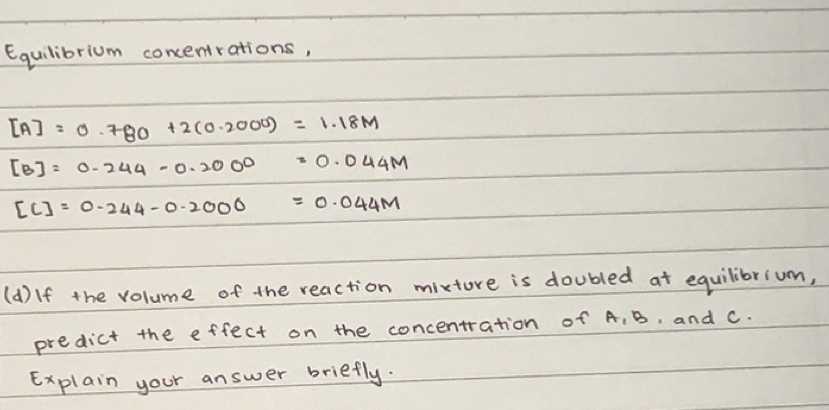 Equilibrium concentrations,
[A] = 0.780 + 2(0.2000) = 1.18M
[B] = 0.244 - 0.2000 = 0.044M
[C] = 0-244-0.2000 = 0.044M
(d) If the volume of the reaction mixture is doubled at equilibrium,
predict the effect on the concentration of A, B, and C.
Explain your answer briefly.